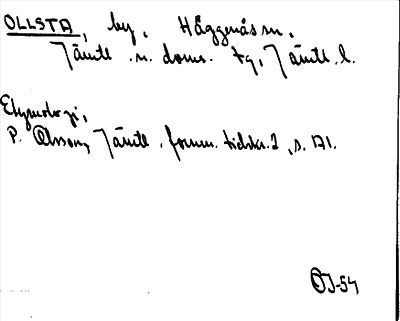 OLLSTA, by, Häggenås sn,
Jämtl. n. doms. tg, Jämtl. l.
Etymologi,
P. Olsson, Jämtl. fornm. tidskr. 2, s. 171.
OJ-54